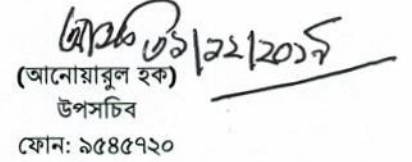 ৩১|১২|২০১৭
(আনোয়ারুল হক)
উপসচিব
ফোন: ৯৫৪৫৭২০